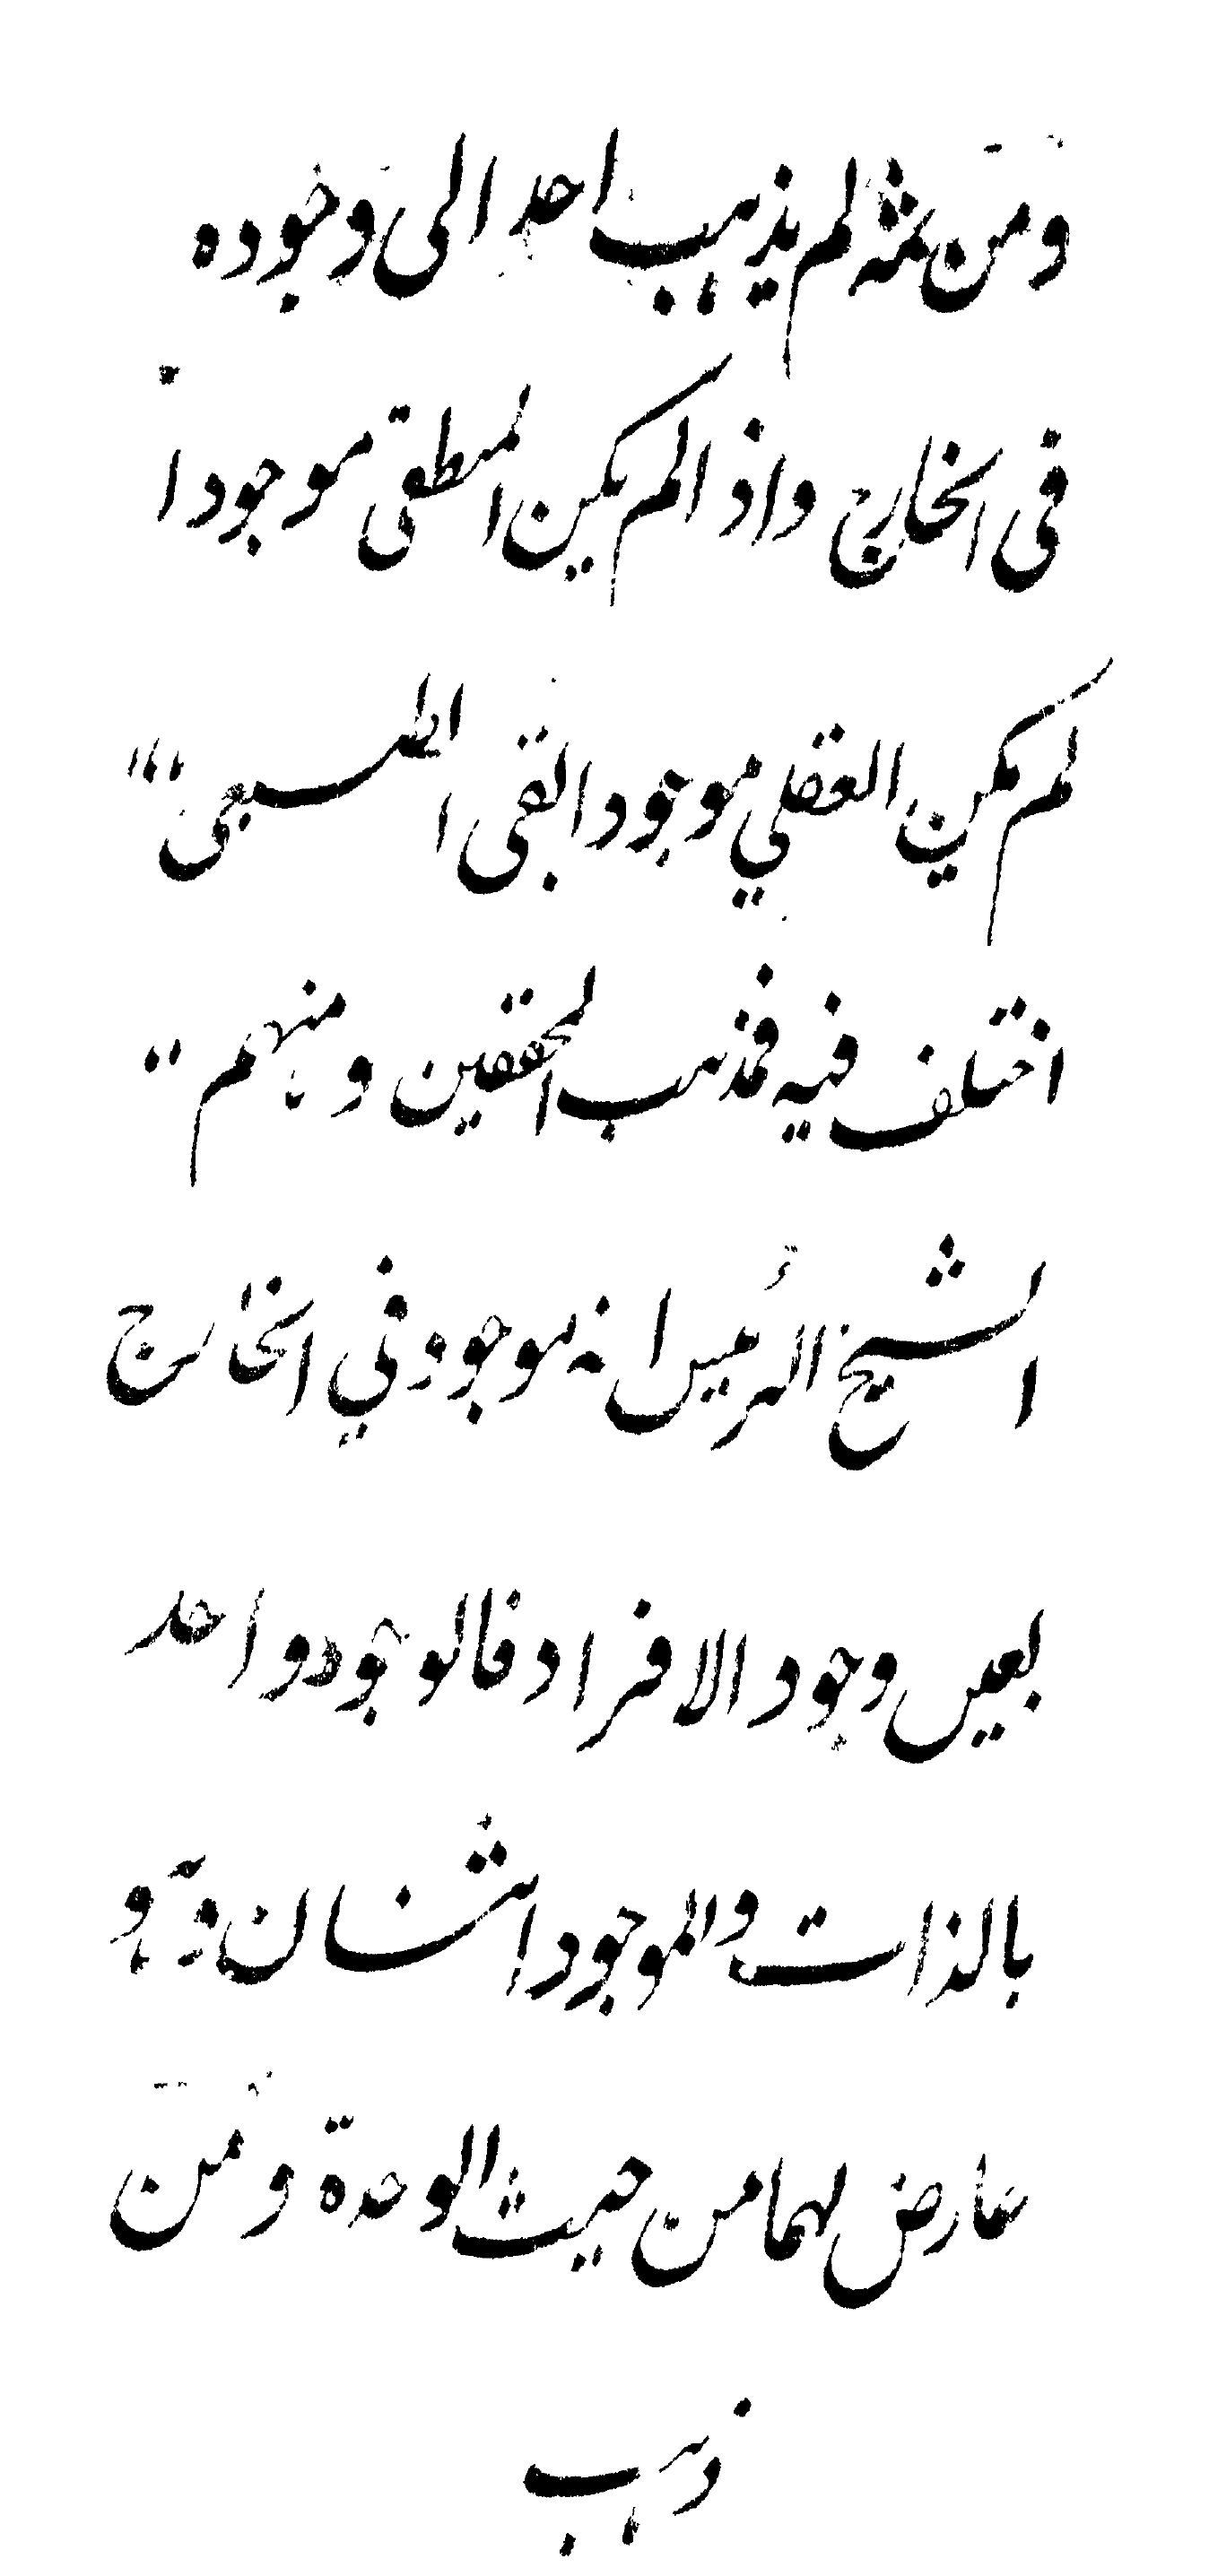 ومن ثمه لم يذهب احد الى وجوده
فى الخارج واذالم يكن المنطقى موجودا
لم يكن العقلي موجودا بقى الطبيعى
اختلف فيه فمذهب المحققين ومنهم
الشيخ الرئيس انه موجود في الخارج
بعين وجود الافراد فالوجود واحد
بالذات والموجود اثنان وهو
عارض لهما من حيث الوحدة ومن
ذهب